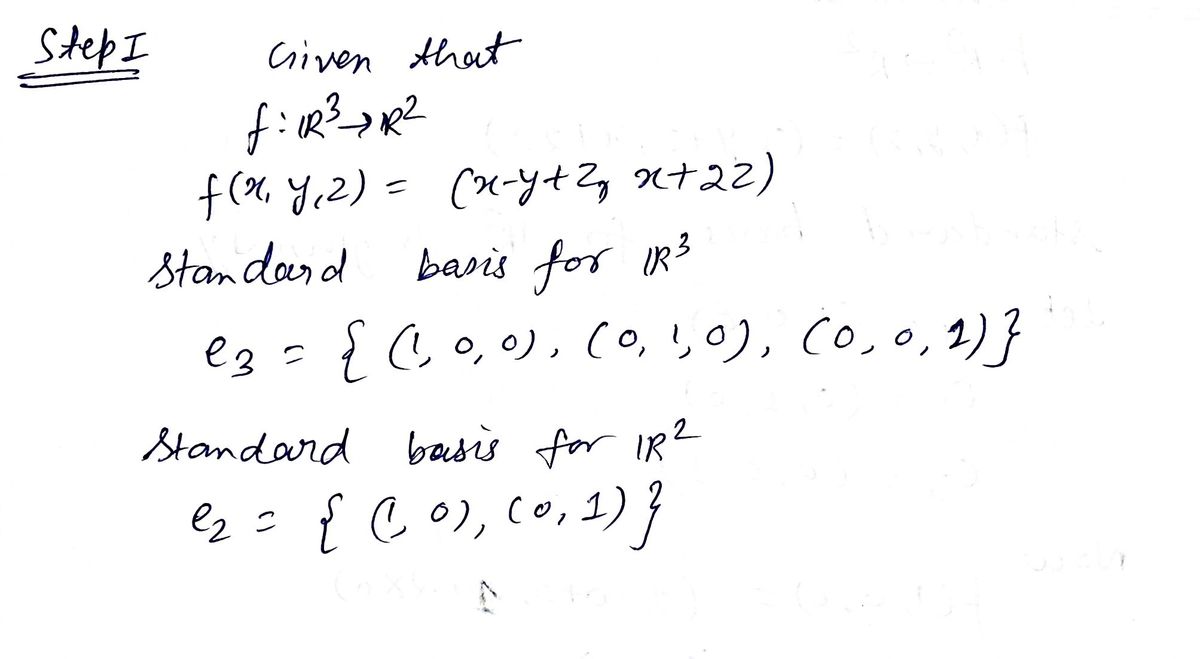 Step I Given that
f: ℝ³→ℝ²
f(x, y, z) = (x-y+z, x+2z)
Standard basis for ℝ³
e₃ = { (1, 0, 0), (0, 1, 0), (0, 0, 1)}
Standard basis for ℝ²
e₂ = { (1, 0), (0, 1)}